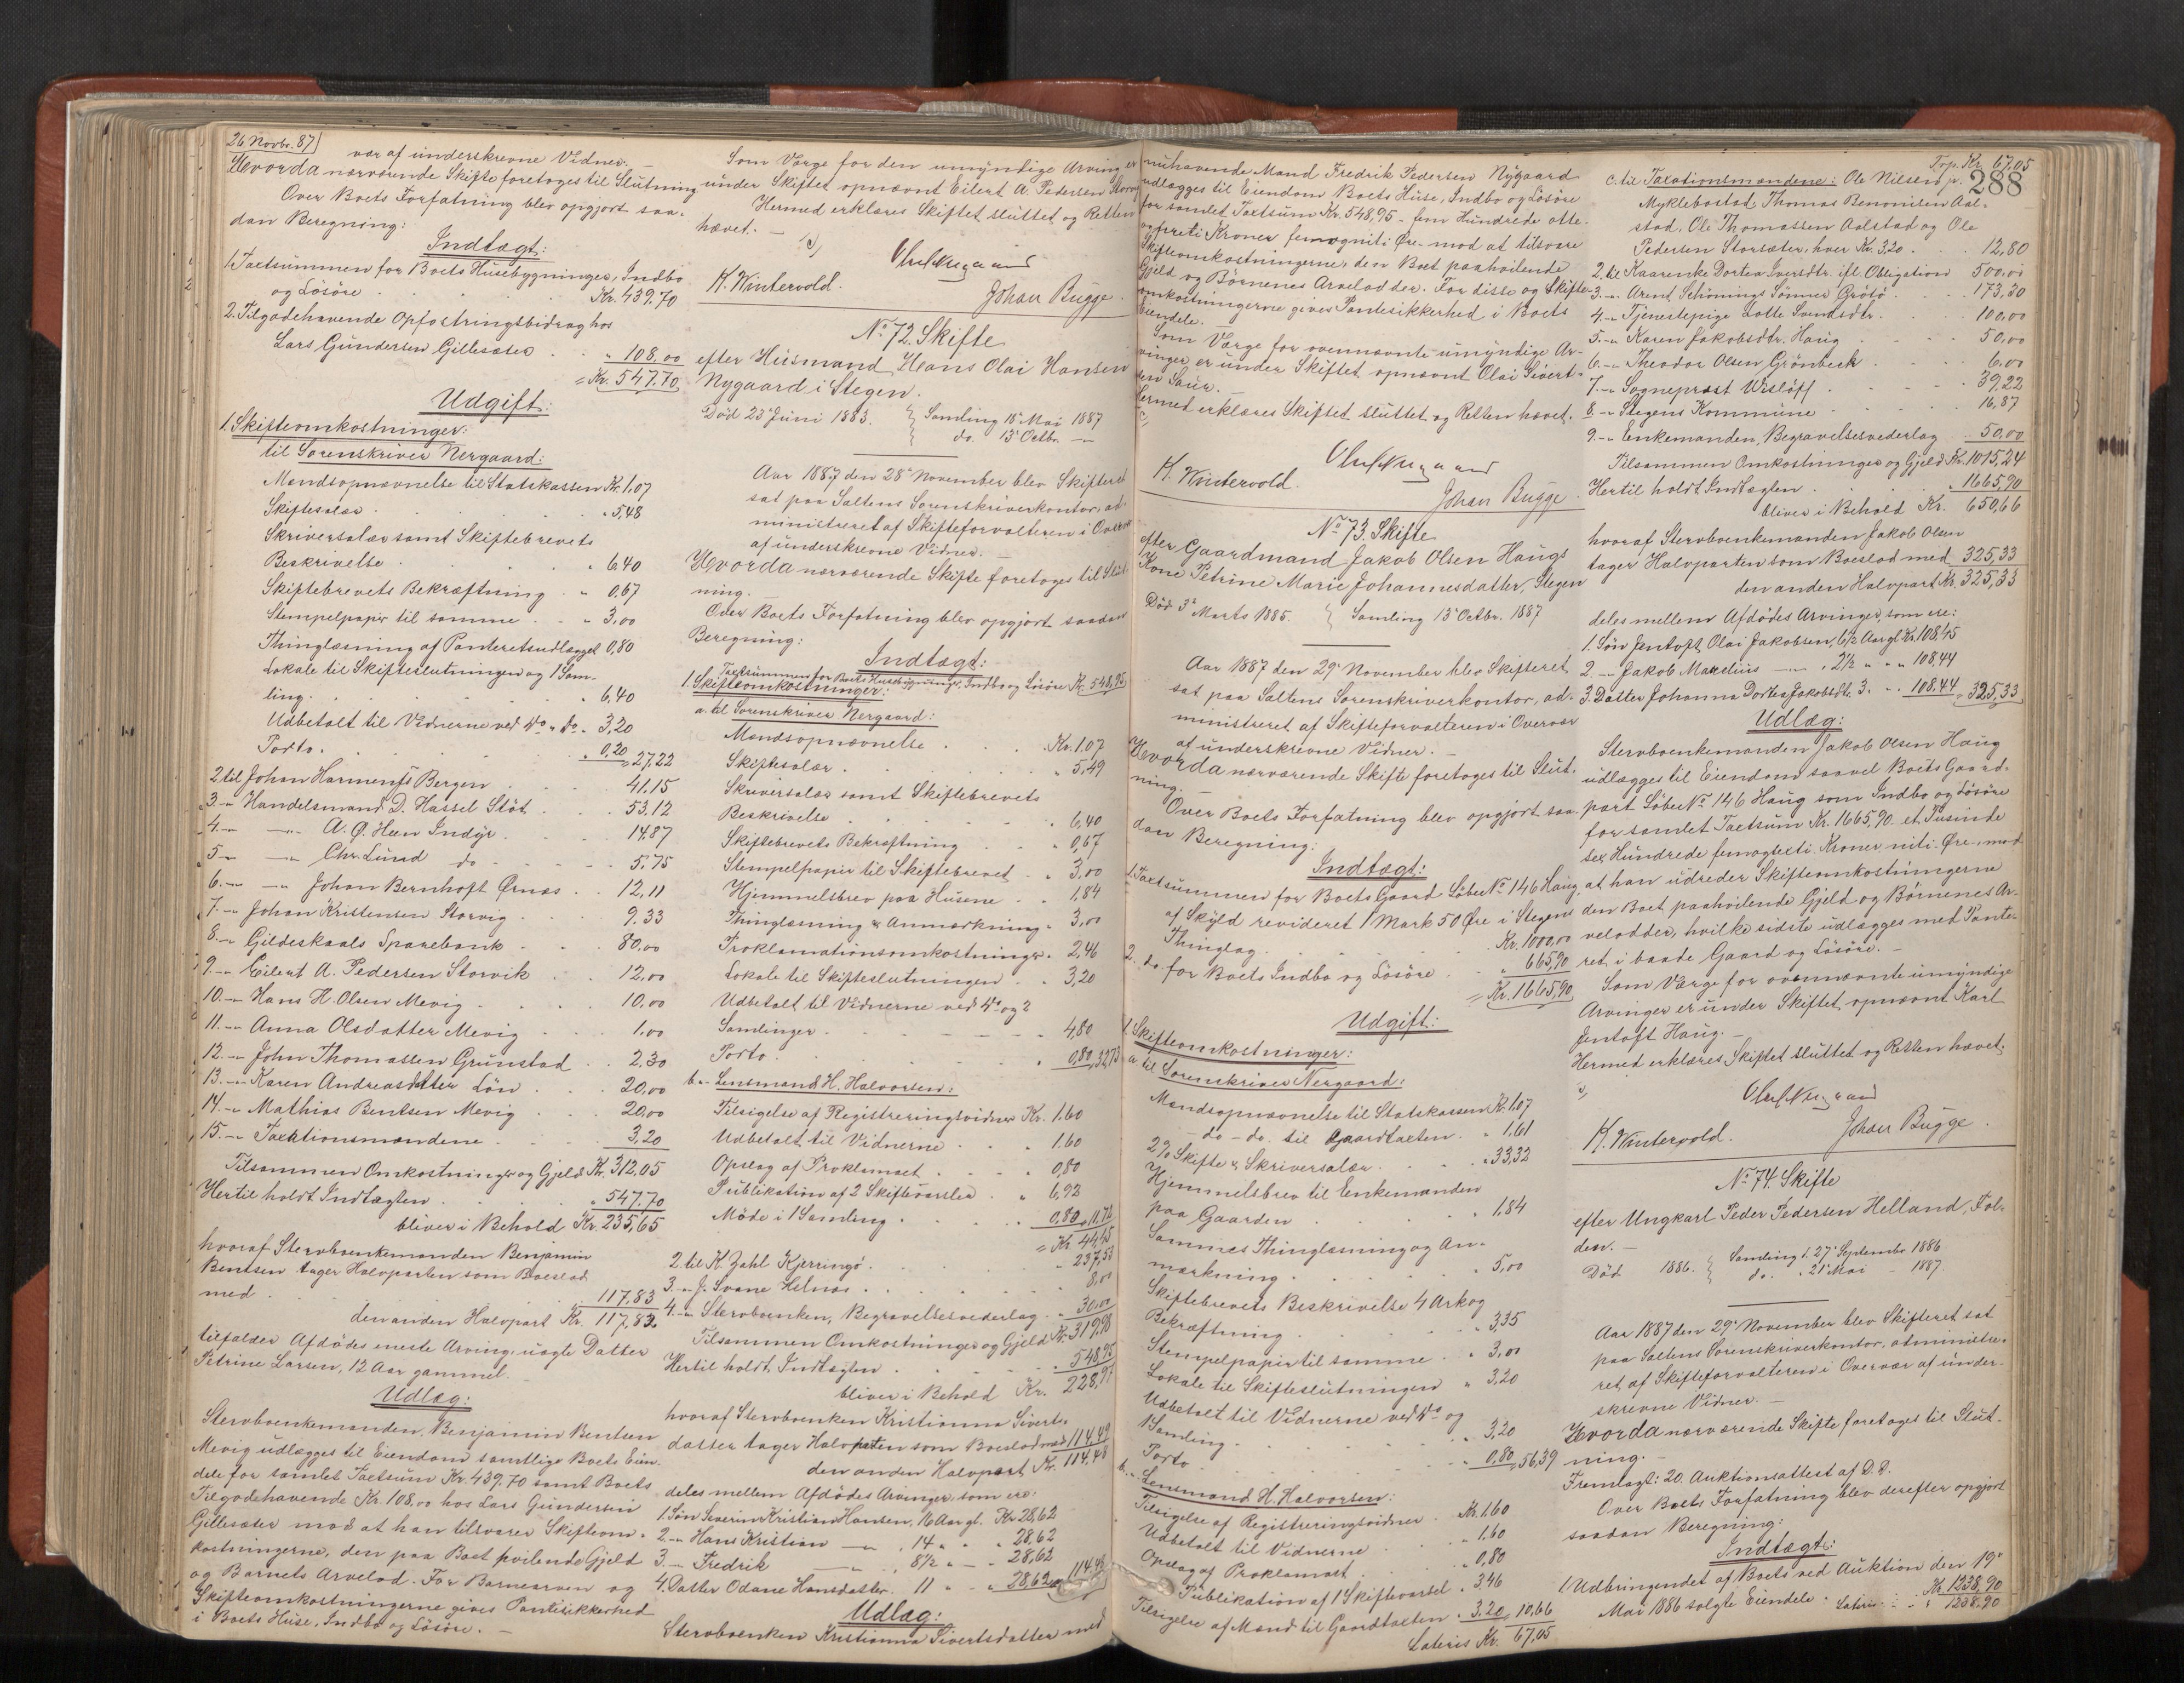 26 Novbr. 87
vær af underskrevne Vidner. –
Hvorda nærværende Skifte foretoges til Slutning
Over Boets Forfatning blev opgjort saa-
dan Beregning:
Indtægt:
1. Taxtsummen for Boets Husebygninger, Indbo
og Lösöre . . . Kr. 439.70
2. Tilgodehavende Opfostringsbidrag hos
Lars Gundersen Gillesæter . . " 108,00
= Kr. 547.70
Udgift:
1. Skifteomkostninger:
til Sorenskriver Nergaard:
Mandsopnævnelse til Statskassen Kr. 1.07
Skiftesalær . . " 5,48
Skriversalær samt Skiftebrevets
Beskrivelse . . " 6,40
Skiftebrevets Bekræftning . " 0,67
Stempelpapir til samme . . " 3,00
Thinglæsning af Panteretsudlægget 0,80
Lokale til Skifteslutningen og 1 Sam-
ling . . " 6,40
Udbetalt til Vidnerne ved do " do " 3,20
Porto . . " 0,20 = 27,22
2. til Johan Harmens Bergen . . 41.15
3. -"- Handelsmand D. Hassel Stöt . . 53.12
4. -"- -"- A. Ø. Hæn Indyr . . 14.87
5. -"- -"- Chr. Lund do . . 5.75
6. -"- -"- Johan Bernhoft Ørnæs . . 12,11
7. -"- Johan Kristensen Storvig . . 9.33
8. -"- Gildeskaals Sparebank . . 80,00
9. -"- Eilert A. Pedersen Storvik . . 12,00
10. -"- Hans H. Olsen Mevig . . 10.00
11. -"- Anna Olsdatter Mevig . . 1.00
12. -"- John Thomassen Grimstad . . 2.30
13. -"- Karen Andreasdatter Lön . . 20,00
14. -"- Mathias Bentsen Mevig . . 20,00
15. -"- Taxtionsmændene . . 3,20
Tilsammen Omkostninger og Gjeld Kr. 312,05
Hertil holdt Indtægten . . " 547.70
bliver i Behold Kr. 235,65
hvoraf Stervboenkemanden Benjamin
Bentsen tager Halvparten som Boeslod
med . . 117,83
den anden Halvpart Kr. 117,82
tilfalder Afdödes eneste Arving, uægte Datter
Petrine Larsen, 12 Aar gammel. –
Udlæg:
Stervboenkemanden, Benjamin Bentsen
Mevig udlægges til Eiendom samtlige Boets Eien-
dele for samlet Taxtsum Kr. 439.70 samt Boets
Tilgodehavende Kr. 108,00 hos Lars Gundersen
Gillesæter mod at han tilsvarer Skifteom-
kostningerne, den paa Boet hvilende Gjeld
og Barnets Arvelod. For Barnearven og
Skifteomkostningerne gives Pantesikkerhed
i Boets Huse, Indbo og Lösöre. –
Som Værge for den umyndige Arving er
under Skiftet opnævnt Eilert A. Pedersen Storvig
Hermed erklæres Skiftet sluttet og Retten
hævet. –
K. Wintervold. Johan Bugge.
No 72. Skifte
efter Husmand Hans Olai Hansen
Nygaard i Stegen.
Död 23 Juni 1883. Samling 18 Mai 1887
do. 13 Octbr. –"–
Aar 1887 den 28 November blev Skifteret
sat paa Saltens Sorenskriverkontor, ad-
ministreret af Skifteforvalteren i Overvær
af underskrevne Vidner. –
Hvorda nærværende Skifte foretoges til Slut-
ning.
Over Boets Forfatning blev opgjort saadan
Beregning:
Indtægt:
Taxtsummen for Boets Husebygninger, Indbo og Lösöre Kr. 548,95
1. Skifteomkostninger:
a. til Sorenskriver Nergaard:
Mandsopnævnelse . . Kr. 1.07
Skiftesalær . . " 5,49
Skriversalær samt Skiftebrevets
Beskrivelse . . " 6,40
Skiftebrevets Bekræftning . . " 0,67
Stempelpapir til Skiftebrevet . " 3,00
Hjemmelsbrev paa Husene . . " 1,84
Thinglæsning & Anmærkning " 3,00
Proklamationsomkostninger . 2,46
Lokale til Skifteslutningen . . 3,20
Udbetalt til Vidnerne ved do og 2
Samlinger . . 4,80
Porto . . " 0,80 32,73
b. -"- Lensmand H. Halvorsen:
Tilsigelse af Registreringsvidner Kr. 1.60
Udbetalt til Vidnerne . . 1.60
Opslag af Proklamaet . . 0,80
Publikation af 2 Skiftevarsler . " 6,92
Möde i 1 Samling . . 0,80 = 11,72
= Kr. 44,45
2. til K. Zahl Kjerringö . . " 237,53
3. -"- J. Svane Helnæs . . 8,00
4. -"- Stervboenken, Begravelsesvederlag . . 30,00
Tilsammen Omkostninger og Gjeld Kr. 319,98
Hertil holdt Indtægten . . " 548,95
bliver i Behold Kr. 228,97
hvoraf Stervboenken Kristianna Sivert-
datter tager Halvparten som Boeslod med 114,49
den anden Halvpart Kr. 114,48
deles mellem Afdödes Arvinger, som ere:
1. Sön Severin Kristian Hansen, 16 Aar gl. Kr. 28,62
2. -"- Hans Kristian –"– 14 " " " 28,62
3. -"- Fredrik –"– 8½ " – " 28,62
4. Datter Odane Hansdatter. 11 " " 28,62 = 114,48
Udlæg:
Stervboenken Kristianna Sivertsdatter med
nuhavende Mand Fredrik Pedersen Nygaard
udlægges til Eiendom Boets Huse, Indbo og Lösöre
for samlet Taxtsum Kr. 548,95 - fem Hundrede otte-
og förti Kroner femogniti Øre - mod at tilsvare
Skifteomkostningerne, den Boet paahvilende
Gjeld og Börnenes Arvelodder. For disse og Skifte-
omkostningerne gives Pantesikkerhed i Boets
Eiendele.
Som Værge for ovennævnte umyndige Ar-
vinger er under Skiftet opnævnt Olai Sivert-
sen Saur.
Hermed erklæres Skiftet sluttet og Retten hævet.
K. Wintervold. Johan Bugge.
No 73. Skifte
efter Gaardmand Jakob Olsen Haugs
Kone Petrine Marie Johannesdatter, Stegen
Död 3 Marts 1885. Samling 13 Octbr. 1887
Aar 1887 den 29 November blev Skifteret
sat paa Saltens Sorenskriverkontor, ad-
ministreret af Skifteforvalteren i Overvær
af underskrevne Vidner. –
Hvorda nærværende Skifte foretoges til Slut-
ning.
Over Boets Forfatning blev opgjort saa-
dan Beregning:
Indtægt:
1. Taxtsummen for Boets Gaard Löbe No 146 Haug,
af Skyld revideret 1 Mark 50 Øre i Stegens
Thinglag . . Kr. 1000,00
2. do for Boets Indbo og Lösöre . . " 665,90
= Kr. 1665,90
Udgift:
1. Skifteomkostninger:
a. til Sorenskriver Nergaard:
Mandsopnævnelse til Statskassen Kr. 1.07
– do – do. til Gaardtaxten . " 1,61
2% Skifte & Skriversalær . . " 33,32
Hjemmelsbrev til Enkemanden
paa Gaarden . . " 1,84
Sammes Thinglæsning og An-
mærkning . . " 5,00
Skiftebrevets Beskrivelse 4 Ark og
Bekræftning . . " 3,35
Stempelpapir til samme . " 3,00
Lokale til Skifteslutningen " 3,20
Udbetalt til Vidnerne ved do og
1 Samling . . " 3,20
Porto . . " 0,80 56,39
b. -"- Lensmand H. Halvorsen:
Tilsigelse af Registreringsvidner . Kr. 1.60
Udbetalt til Vidnerne . . " 1.60
Opslag af Proklamaet . . " 0,80
Publikation af 1 Skiftevarsel . 3,46
Tilsigelse af Mænd til Gaardtaxten . 3.20 10,66
Lateris Kr. 67,05
Trp. Kr. 67,05
288
c. til Taxationsmændene: Ole Nilsen p.
Myklebostad, Thomas Benonisen Aal-
stad, Ole Thomassen Aalstad og Ole
Pedersen Storsæter, hver Kr. 3,20 . . 12,80
2. til Kaarenke Dortea Iversdtr. ifl. Obligation 500,00
3. -"- Arent Schönings Sönner Grötö . . 173,30
4. -"- Tjenestepige Lotte Svendsdtr. . . 100,00
5. -"- Karen Jakobsdtr. Haug . . 50,00
6. -"- Theodor Olsen Grönbæk . . 6.00
7. -"- Sogneprest Wisløff . . 39,22
8. -"- Stegens Kommune . . 16,87
9. -"- Enkemanden, Begravelsesvederlag . 50,00
Tilsammen Omkostninger og Gjeld Kr. 1015,24
Hertil holdt Indtægten . . " 1665,90
bliver i Behold Kr. 650,66
hvoraf Stervboenkemanden Jakob Olsen
tager Halvparten som Boeslod med 325,33
den anden Halvpart Kr. 325,33
deles mellem Afdödes Arvinger, som ere:
1. Sön Jentoft Olai Jakobsen, 6½ Aar gl. Kr. 108,45
2. –"– Jakob Marelius –"– " 2½ " " " 108,44
3. Datter Johanna Dortea Jakobsdt. 3. " " 108,44 = 325,33
Udlæg:
Stervboenkemanden Jakob Olsen Haug
udlægges til Eiendom saavel Boets Gaard-
part Löbe No 146 Haug som Indbo og Lösöre
for samlet Taxtsum Kr. 1665,90 - et Tusinde
sex Hundrede femogsexti Kroner niti Øre - mod
at han udreder Skifteomkostningerne
den Boet paahvilende Gjeld og Börnenes Ar-
velodder, hvilke sidste udlægges med Pante-
ret i baade Gaard og Lösöre. –
Som Værge for ovennævnte umyndige
Arvinger er under Skiftet opnævnt Karl
Jentoft Haug. –
Hermed erklæres Skiftet sluttet og Retten hævet.
K. Wintervold. Johan Bugge.
No 74. Skifte
efter Ungkarl Peder Pedersen Helland, Fol-
den. –
Död 1886. Samling 1. 27 Septembr 1886
do. " 21 Mai – 1887.
Aar 1887 den 29 November blev Skifteret sat
paa Saltens Sorenskriverkontor, administre-
ret af Skifteforvalteren i Overvær af under-
skrevne Vidner. –
Hvorda nærværende Skifte foretoges til Slut-
ning. –
Fremlagt: 20. Auktionsattest af D.D.
Over Boets Forfatning blev derefter opgjort
saadan Beregning:
Indtægt:
1. Udbringendet af Boets ved Auktion den 19
Mai 1886 solgte Eiendele . Kr. 1238,90
Lateris . . " 1238,90